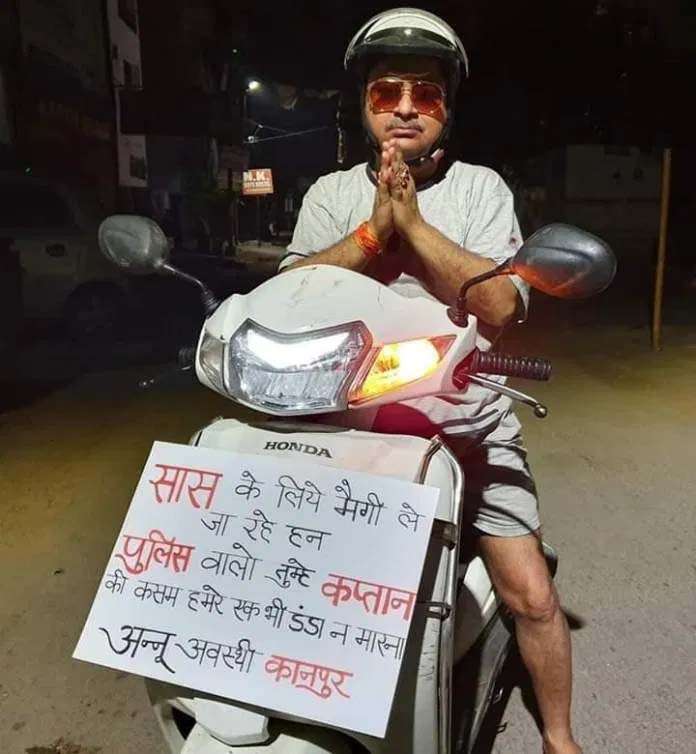 N.K.
HONDA
सास के लिये मैगी ले
जा रहे हन
पुलिस वालो तुम्हे कप्तान
की कसम हमरे एक भी डंडा न मारना
अन्नू अवस्थी कानपुर